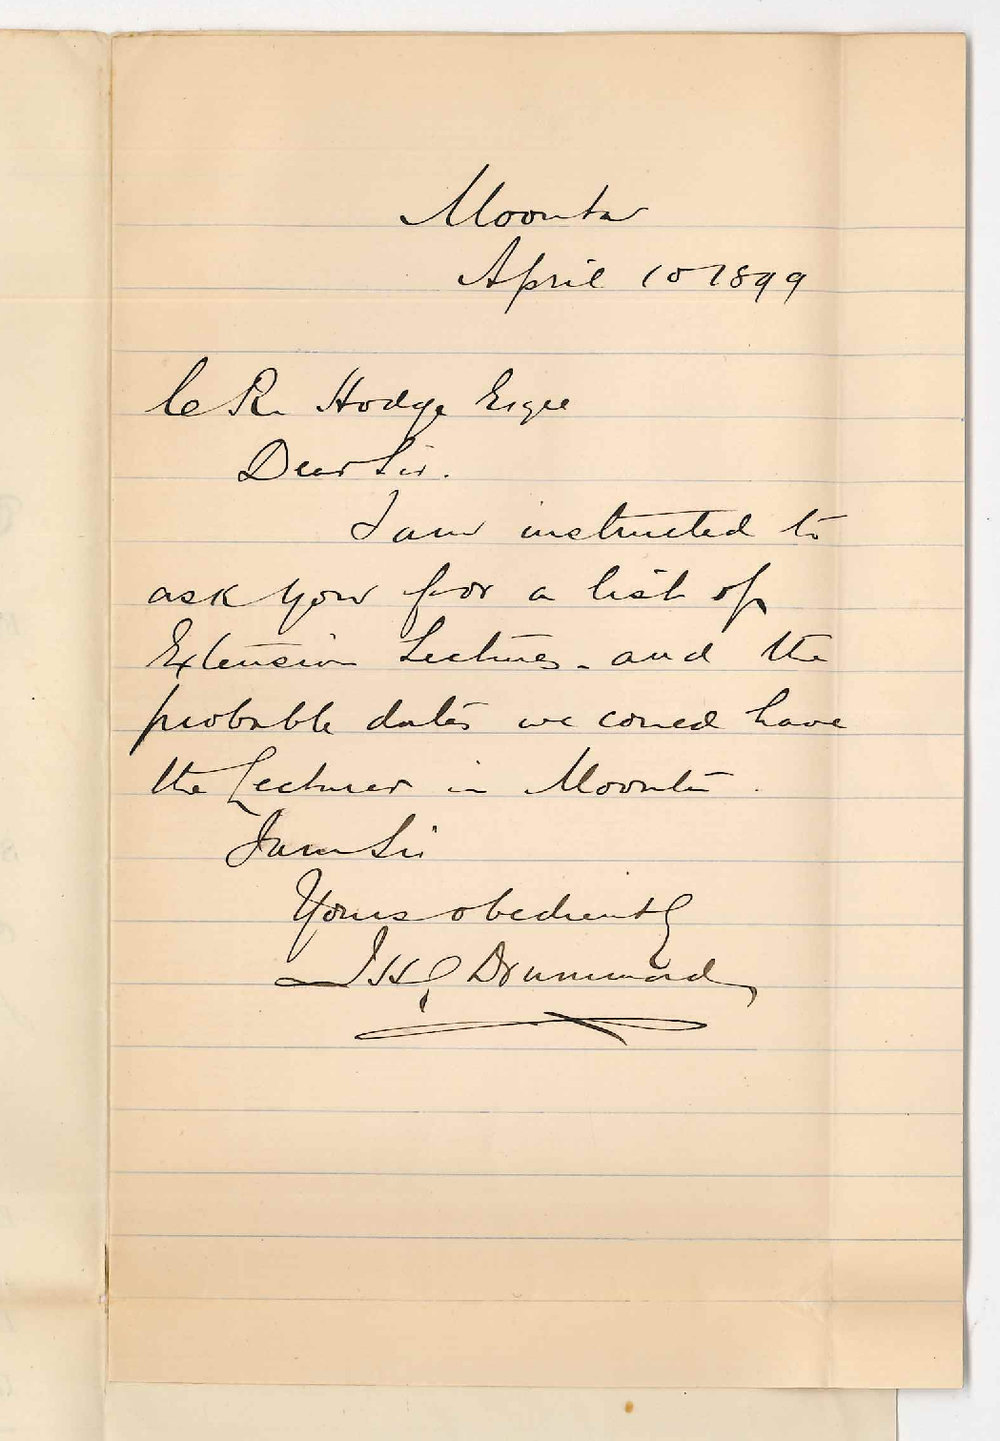 Moonta
April 10 1899
C R Hodge Esqre
Dear Sir.
I am instructed to
ask you for a list of
Extension Lectures - and the
probable dates we could have
the Lecturer in Moonta.
I am Sir
Yours obediently
J H Drummond